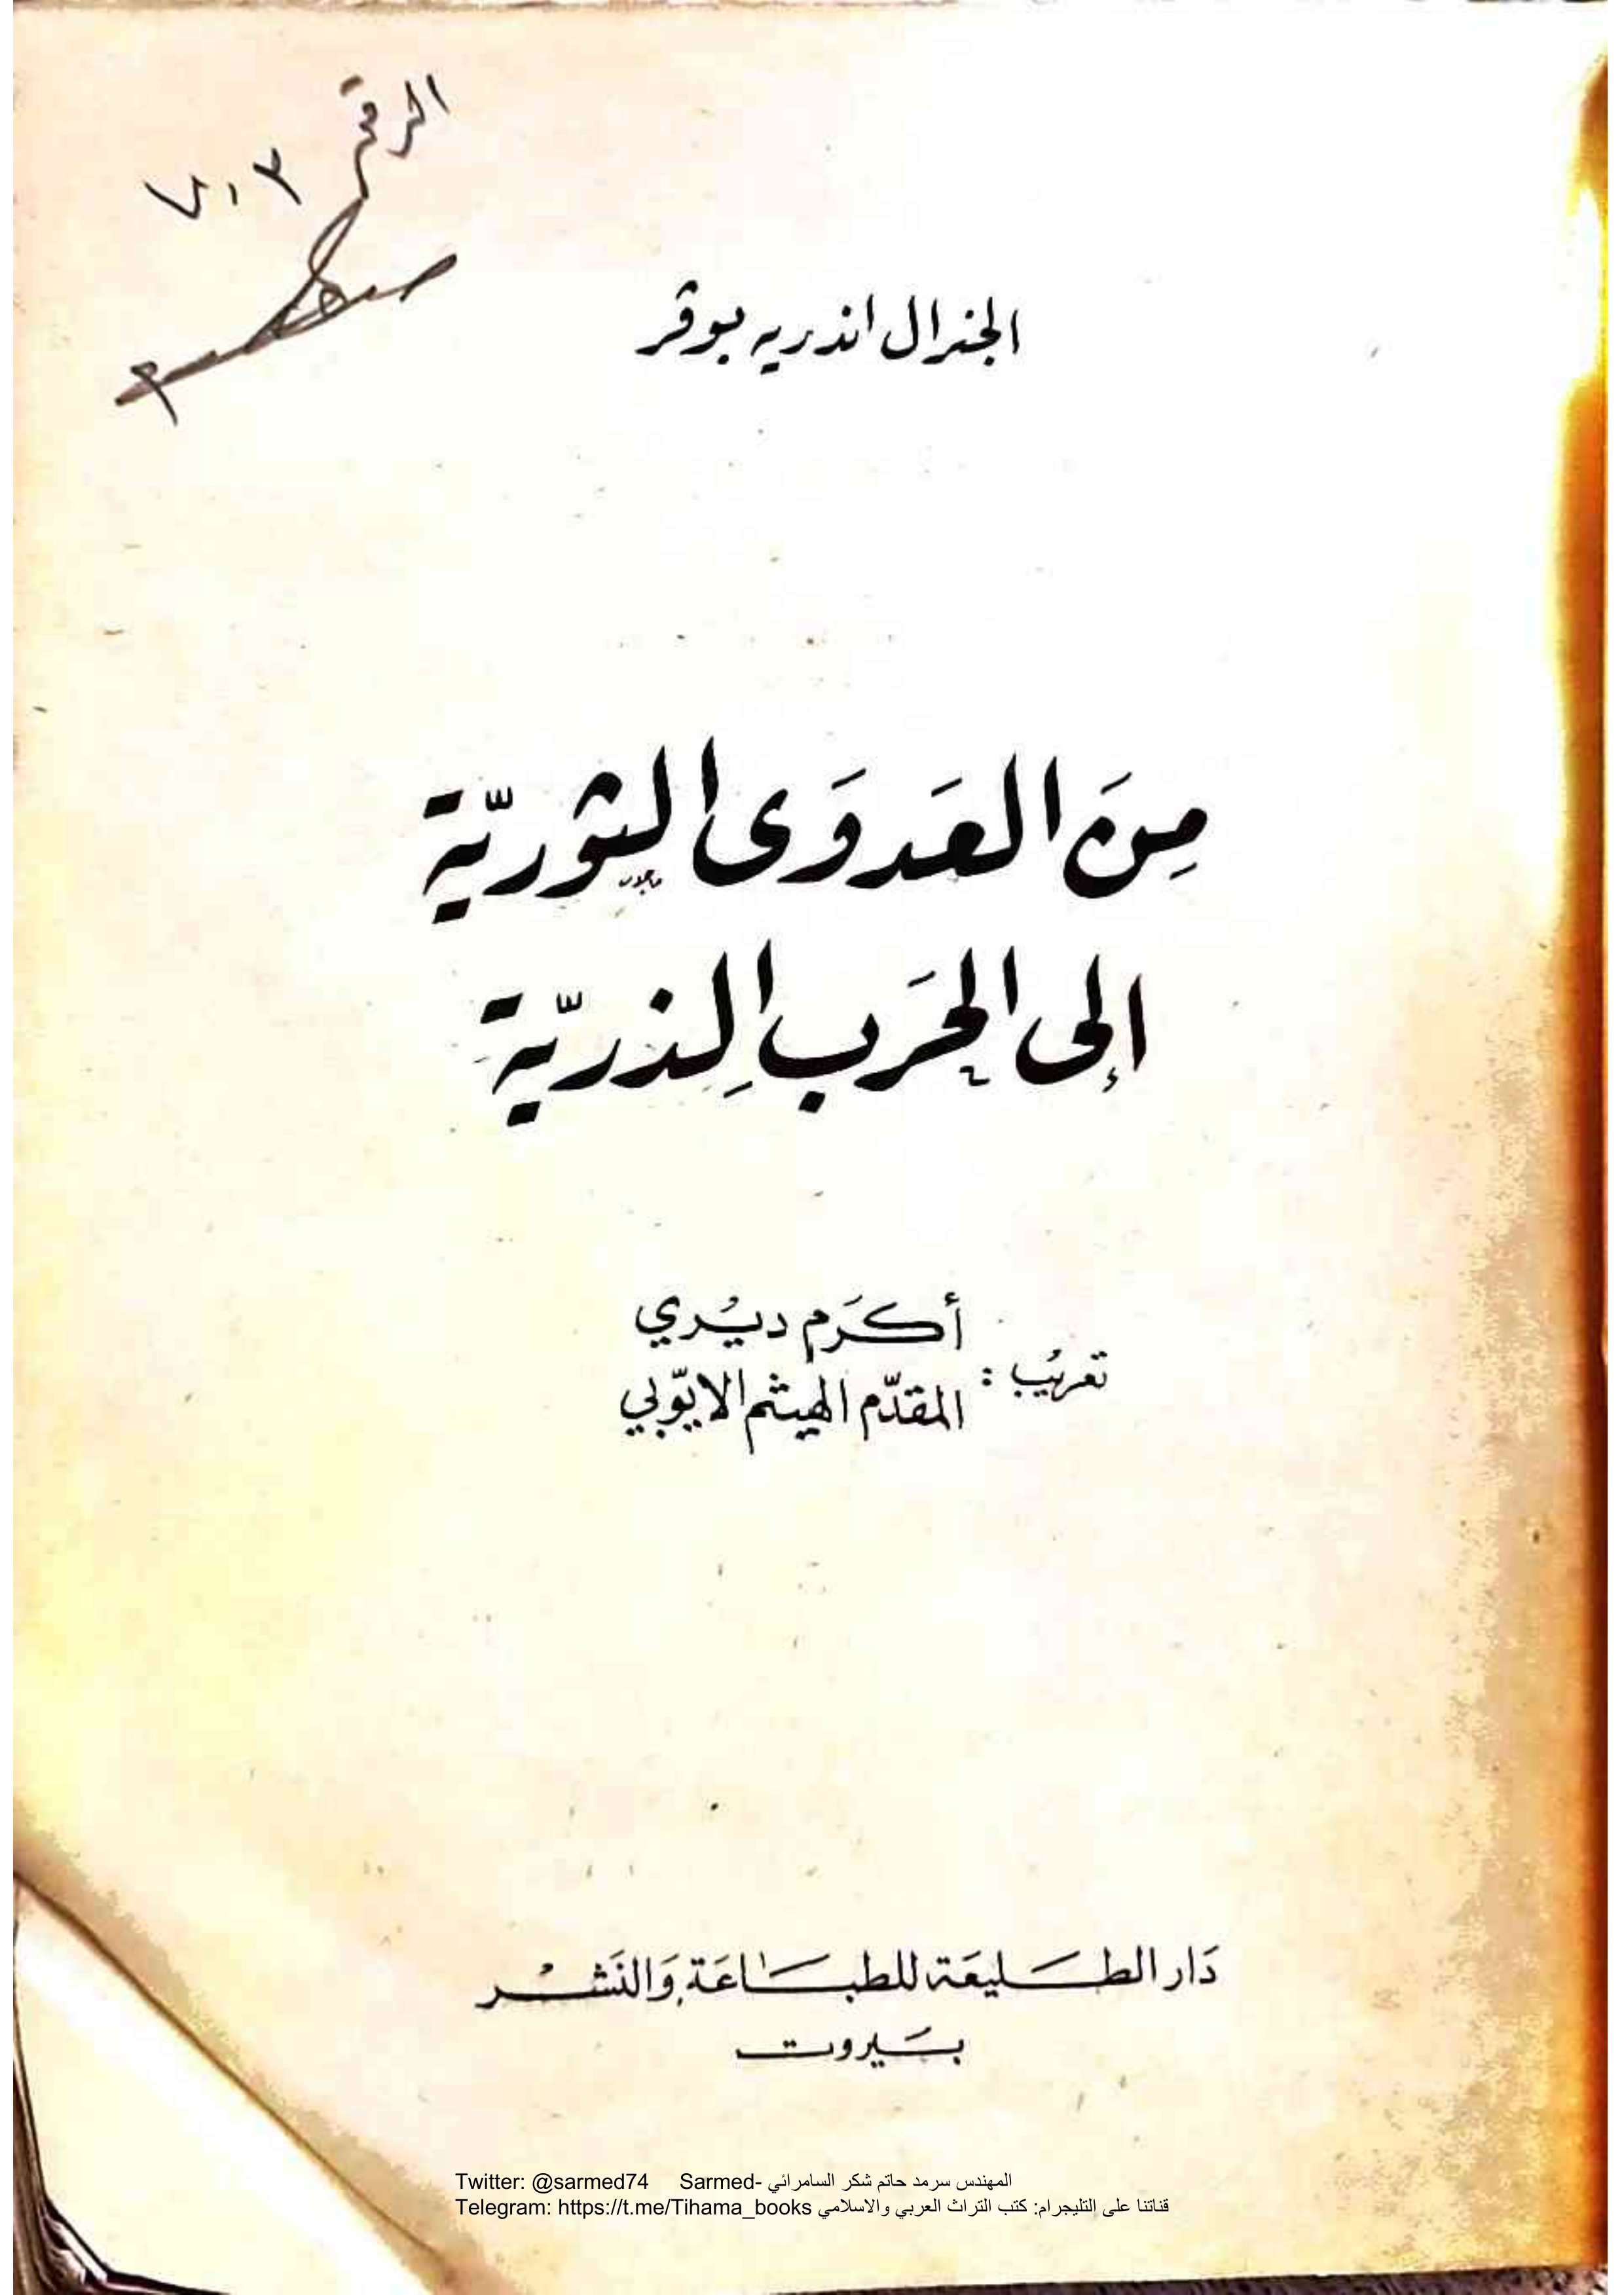 الرقم
٧٠٣
الجنرال اندريه بوفر
مِنَ العَدوَى الثوريّة
إلى الحَرب الذريّة
تعريب :
أكرَم ديري
المقدّم الهيثم الايّوبي
دَار الطليعَة للطباعَة وَالنَشْر
بَيروت
Twitter: @sarmed74 Sarmed- المهندس سرمد حاتم شكر السامرائي
Telegram: https://t.me/Tihama_books قناتنا على التليجرام: كتب التراث العربي والاسلامي